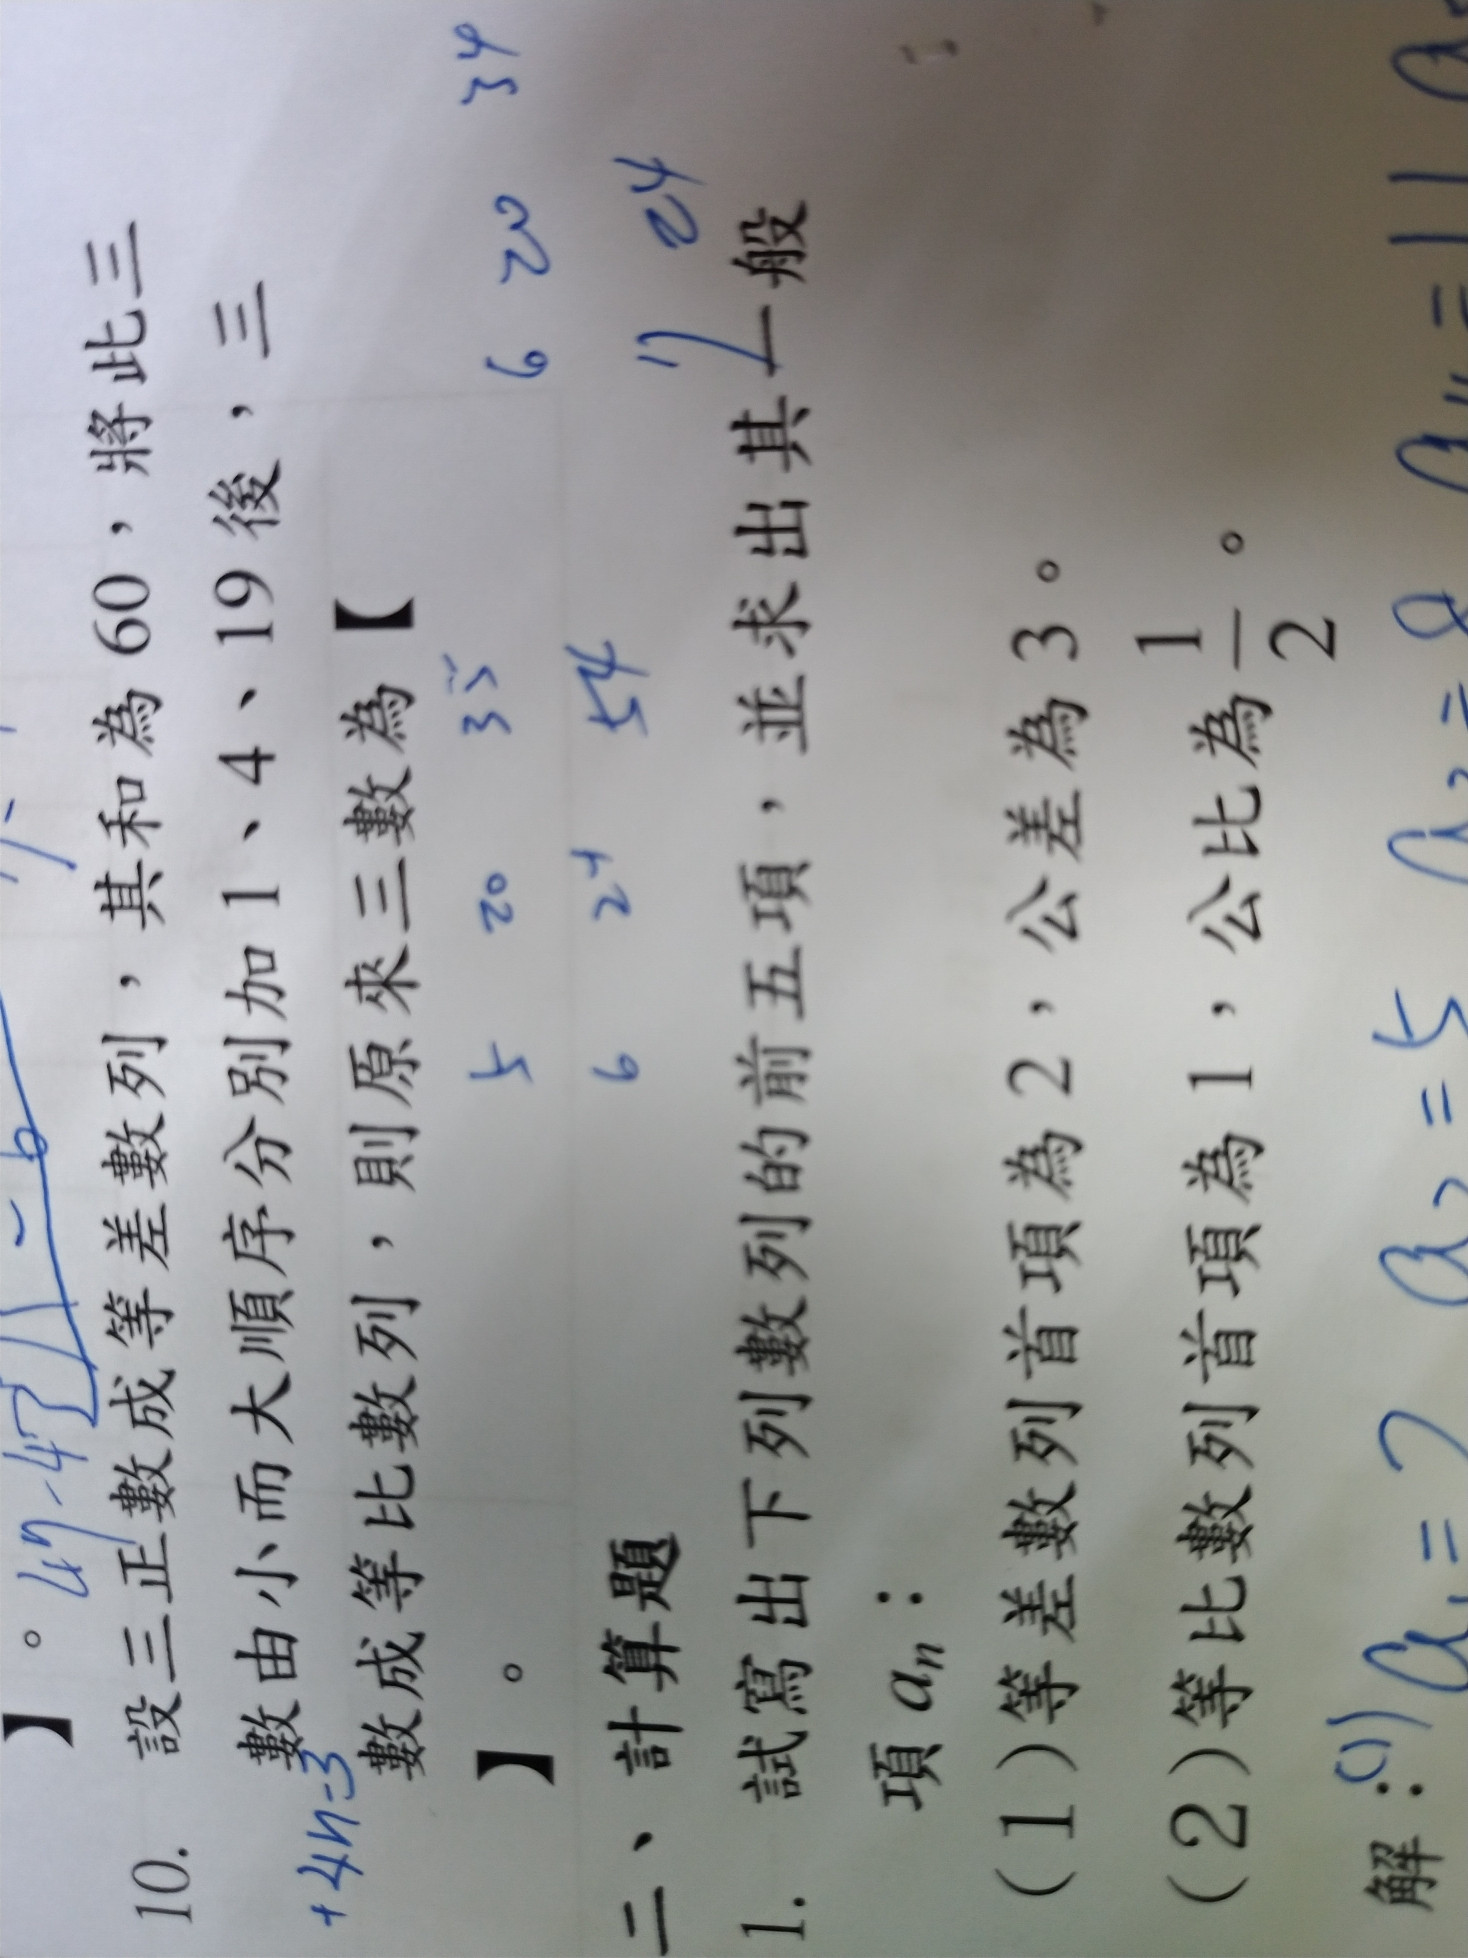 】。 4n-4
10. 設三正數成等差數列，其和為 60，將此三
數由小而大順序分別加 1、4、19 後，三
+4n-3
數成等比數列，則原來三數為【
5 20 35 6 20 34
】。
6 24 54
24
二、計算題
1. 試寫出下列數列的前五項，並求出其一般
項 aₙ：
(1) 等差數列首項為 2，公差為 3。
(2) 等比數列首項為 1，公比為 1/2。
解：(1) a₁=2 a₂=5 a₃=8 a₄=11